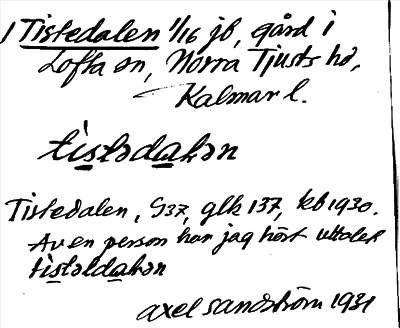 1 Tistedalen 1/16 jb, gård i
Lofta sn, Norra Tjusts hd,
Kalmar l.
tistədalən
Tistedalen, S37, glk 137, kb 1930.
Av en person har jag hört uttalet
tistəldalən
Axel Sandström 1931